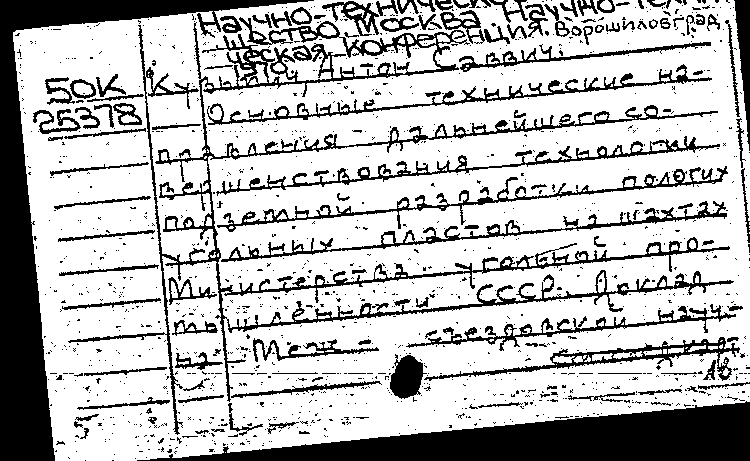 Научно-техническ
щество, Москва. Научно-техни
ческая конференция. Ворошиловград,
1970.
50К
25378
Кузьмич, Антон Саввич.
Основные технические на-
правления дальнейшего со-
вершенствования технологии
подземной разработки пологих
угольных пластов на шахтах
Министерства угольной про-
мышленности СССР. Доклад
на Меж-съездовской науч.-
18
5